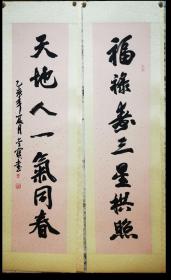 福祿壽三星拱照
天地人一氣同春
乙亥年夏月
書